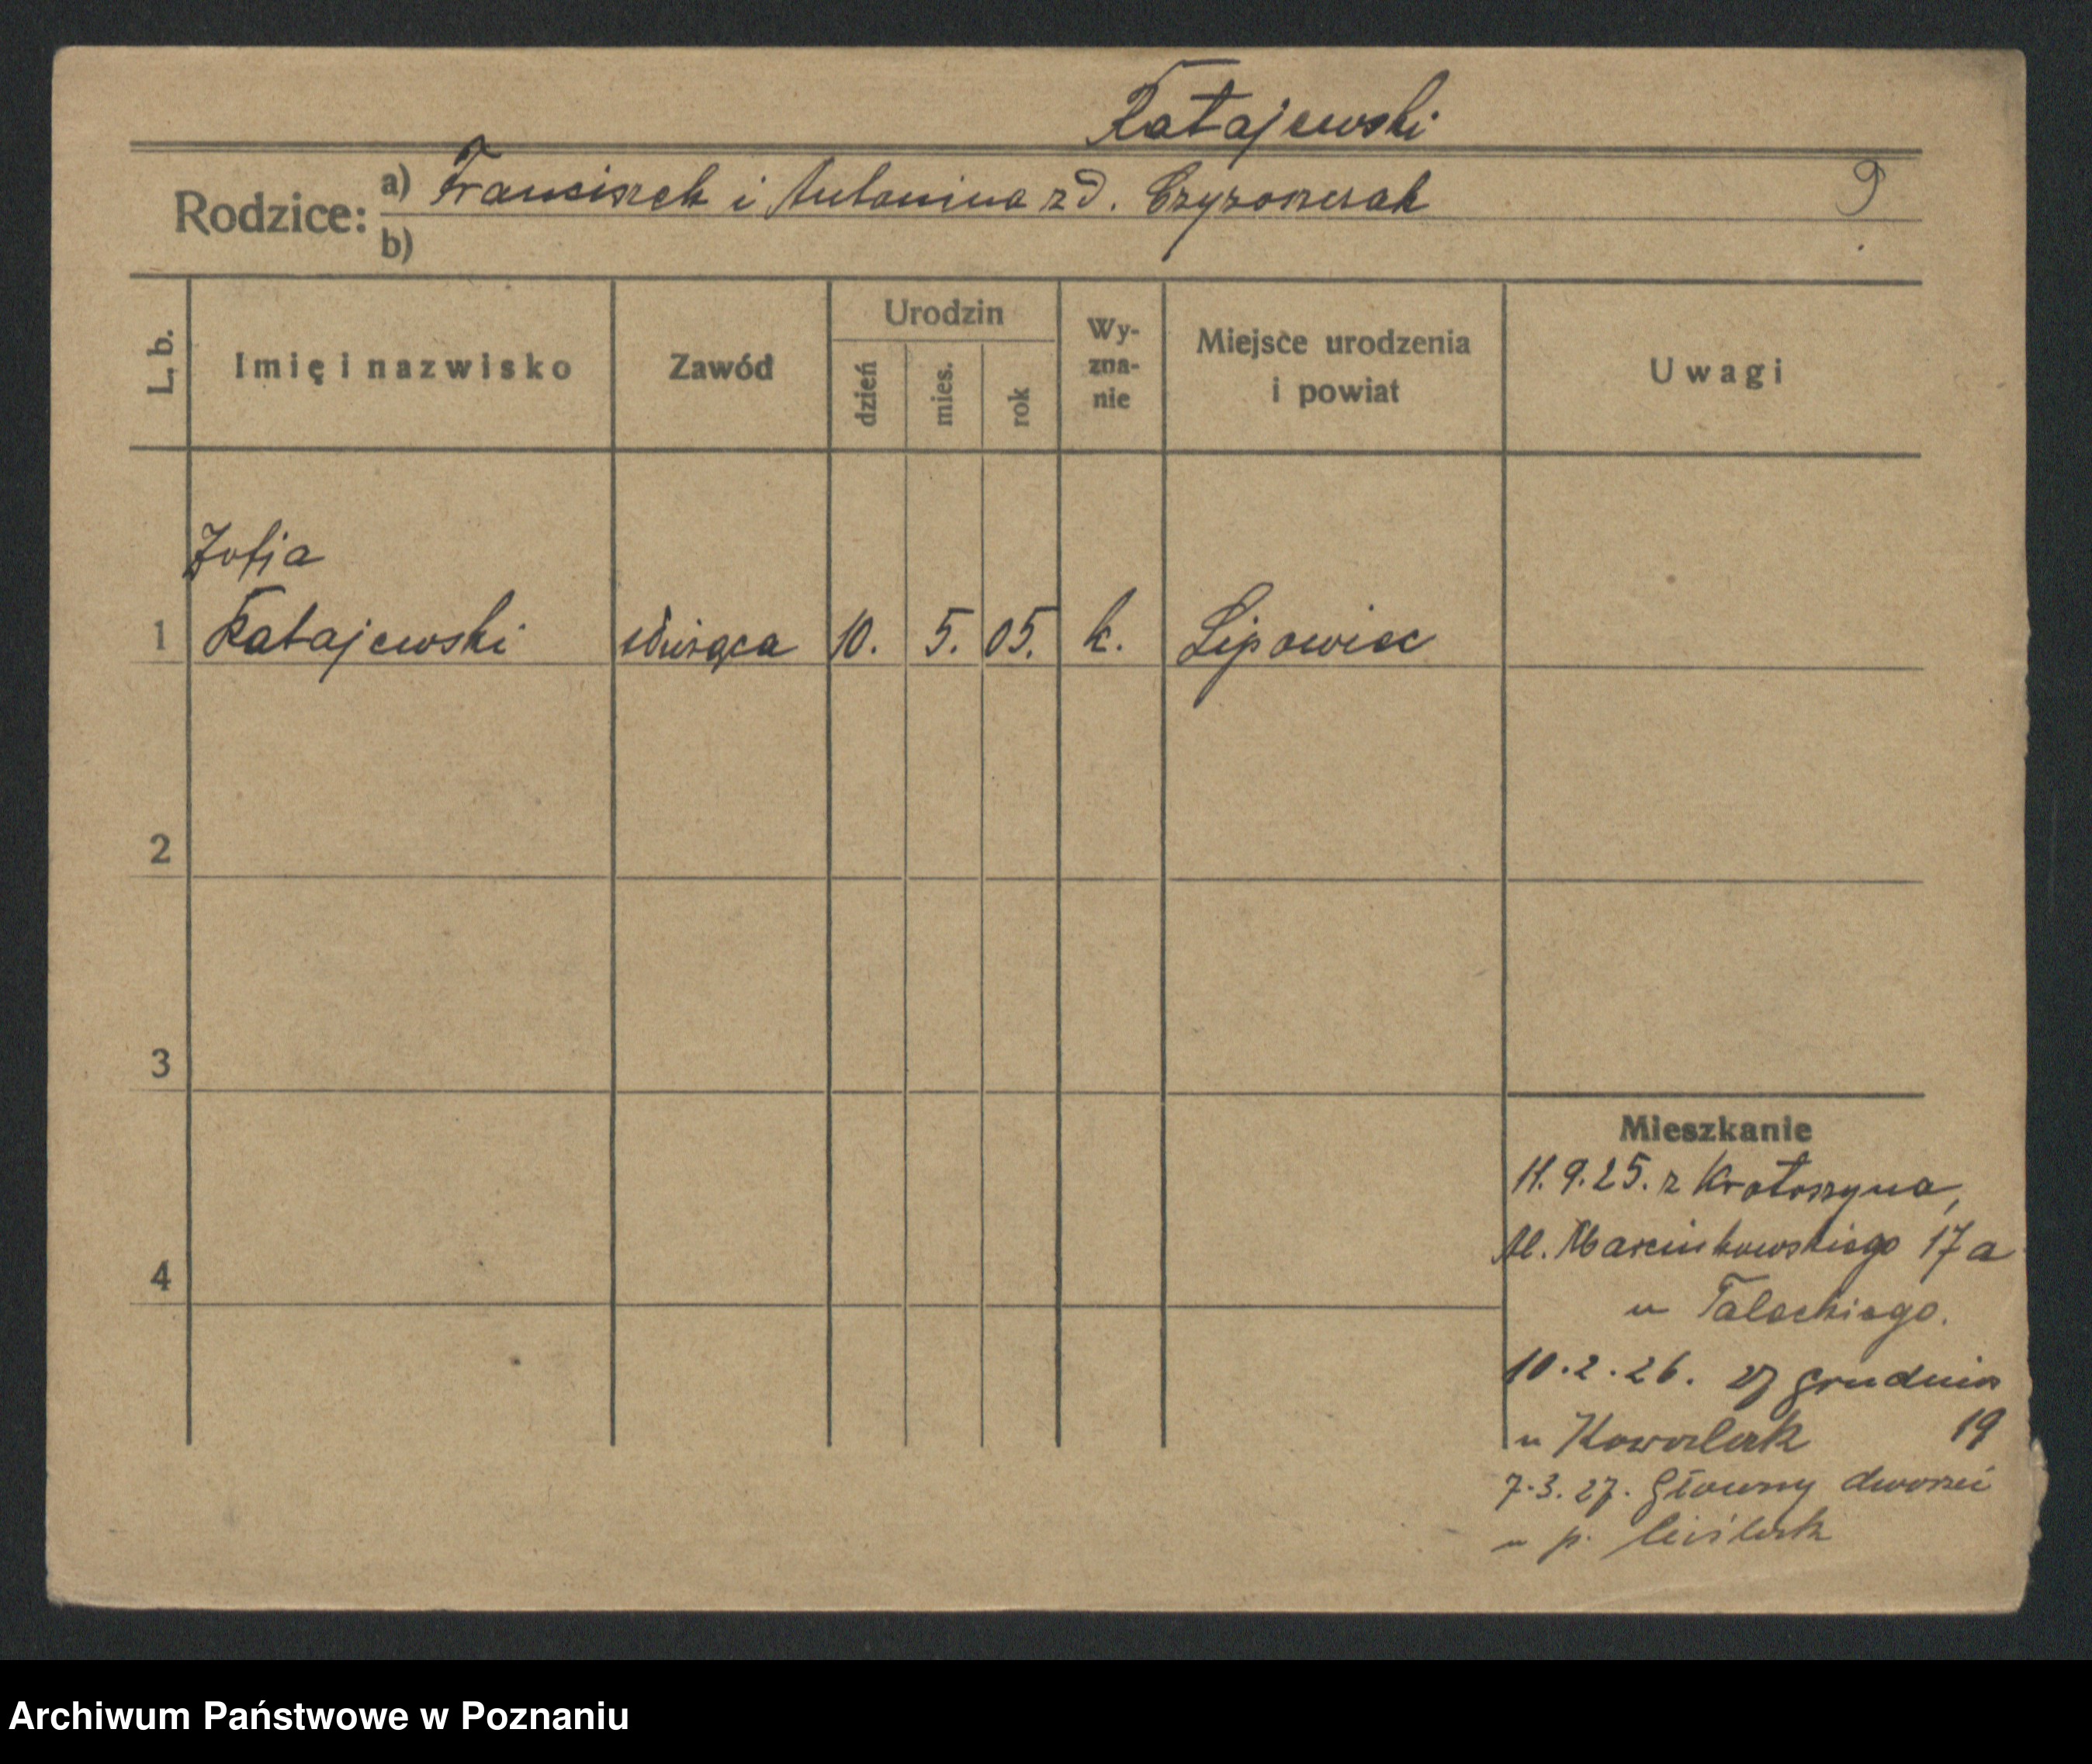 Ratajewski
Rodzice: a) Franciszek i Antonina zd.
b)
9
L. b.
Imię i nazwisko
Zawód
Urodzin
dzień
mies.
rok
Wy-
zna-
nie
Miejsce urodzenia
i powiat
Uwagi
Zofja
1 Ratajewski służąca 10. 5. 05. k. Lipowiec
2
3
4
Mieszkanie
11.9.25. z Krotoszyna,
Al. Marcinkowskiego 17a
u
10.2.26. 27 grudnia
u 19
7.3.27. Główny dworzec
u p.
Archiwum Państwowe w Poznaniu